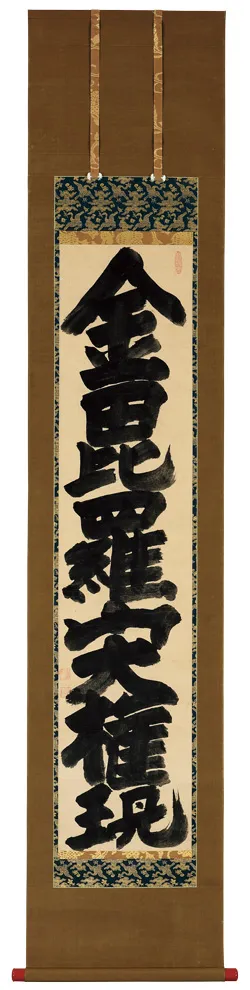 金毘羅山大権現